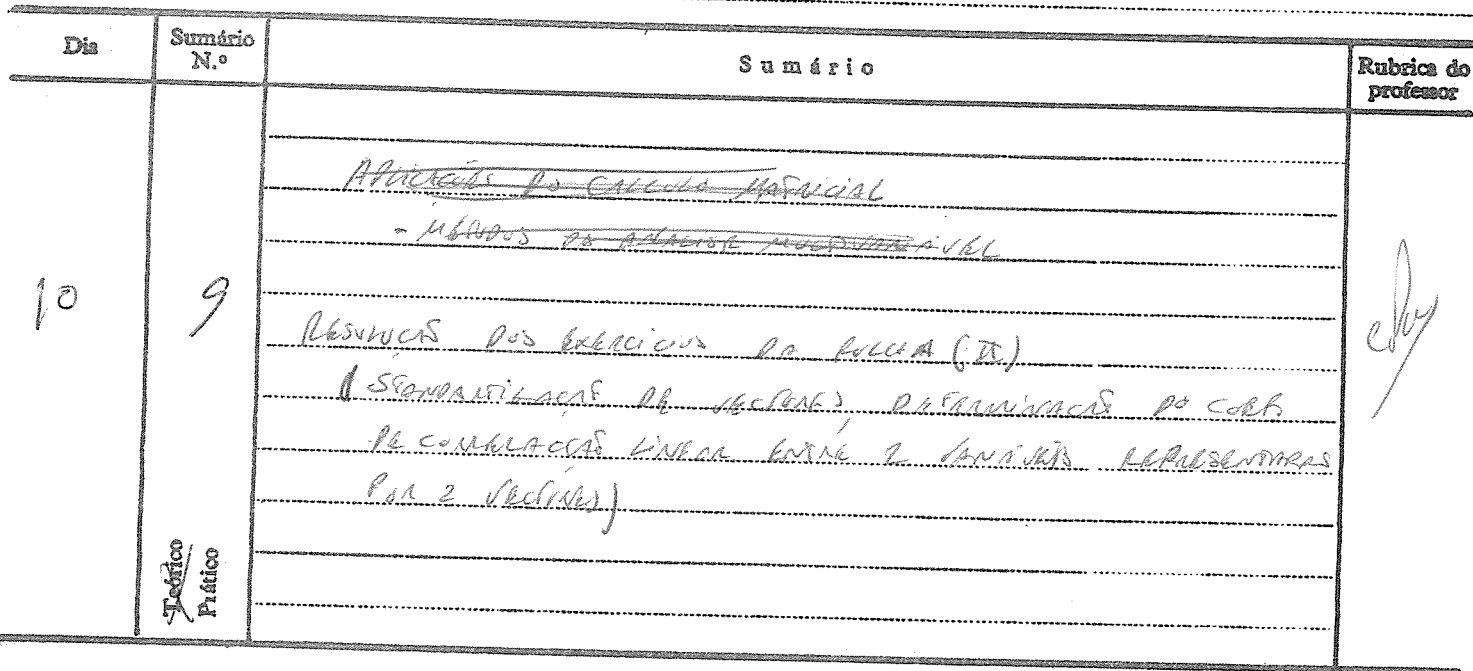 Dia
Sumário N.º
Sumário
Rubrica do professor
APLICAÇÕES DO CALCULO MATRICIAL
- MÉTODOS DE ANÁLISE MULTIVARIÁVEL
10
9
RESOLUÇÃO DOS EXERCICIOS DA FOLHA (II)
( STANDARTIZAÇÃO DE VECTORES, DETERMINAÇÃO DO COEF.
DE CORRELACÇÃO LINEAR ENTRE 2 VARIÁVEIS REPRESENTADAS
POR 2 VECTORES)
Teórico
Prático